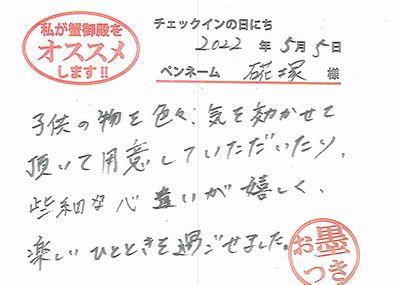 私が蟹御殿を
オススメ
します!!
チェックインの日にち
2022 年 5月 5日
ペンネーム 硴塚 様
子供の物を色々、気を効かせて
頂いて用意していただいたり、
些細な心遣いが嬉しく、
楽しいひとときを過ごせました。
お墨
つき